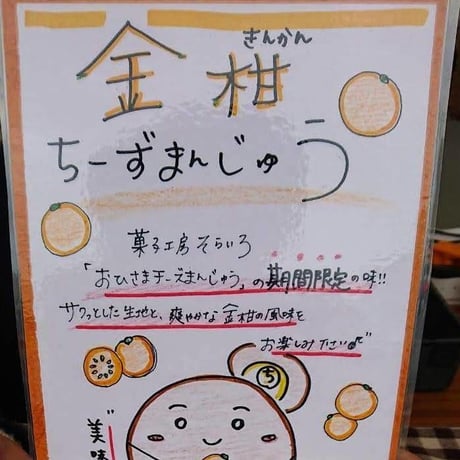 きんかん
金柑
ちーずまんじゅう
菓子工房そらいろ
「おひさまちーえまんじゅう」の期間限定の味!!
サクッとした生地と、爽やかな金柑の風味を
お楽しみ下さい
ち
美味